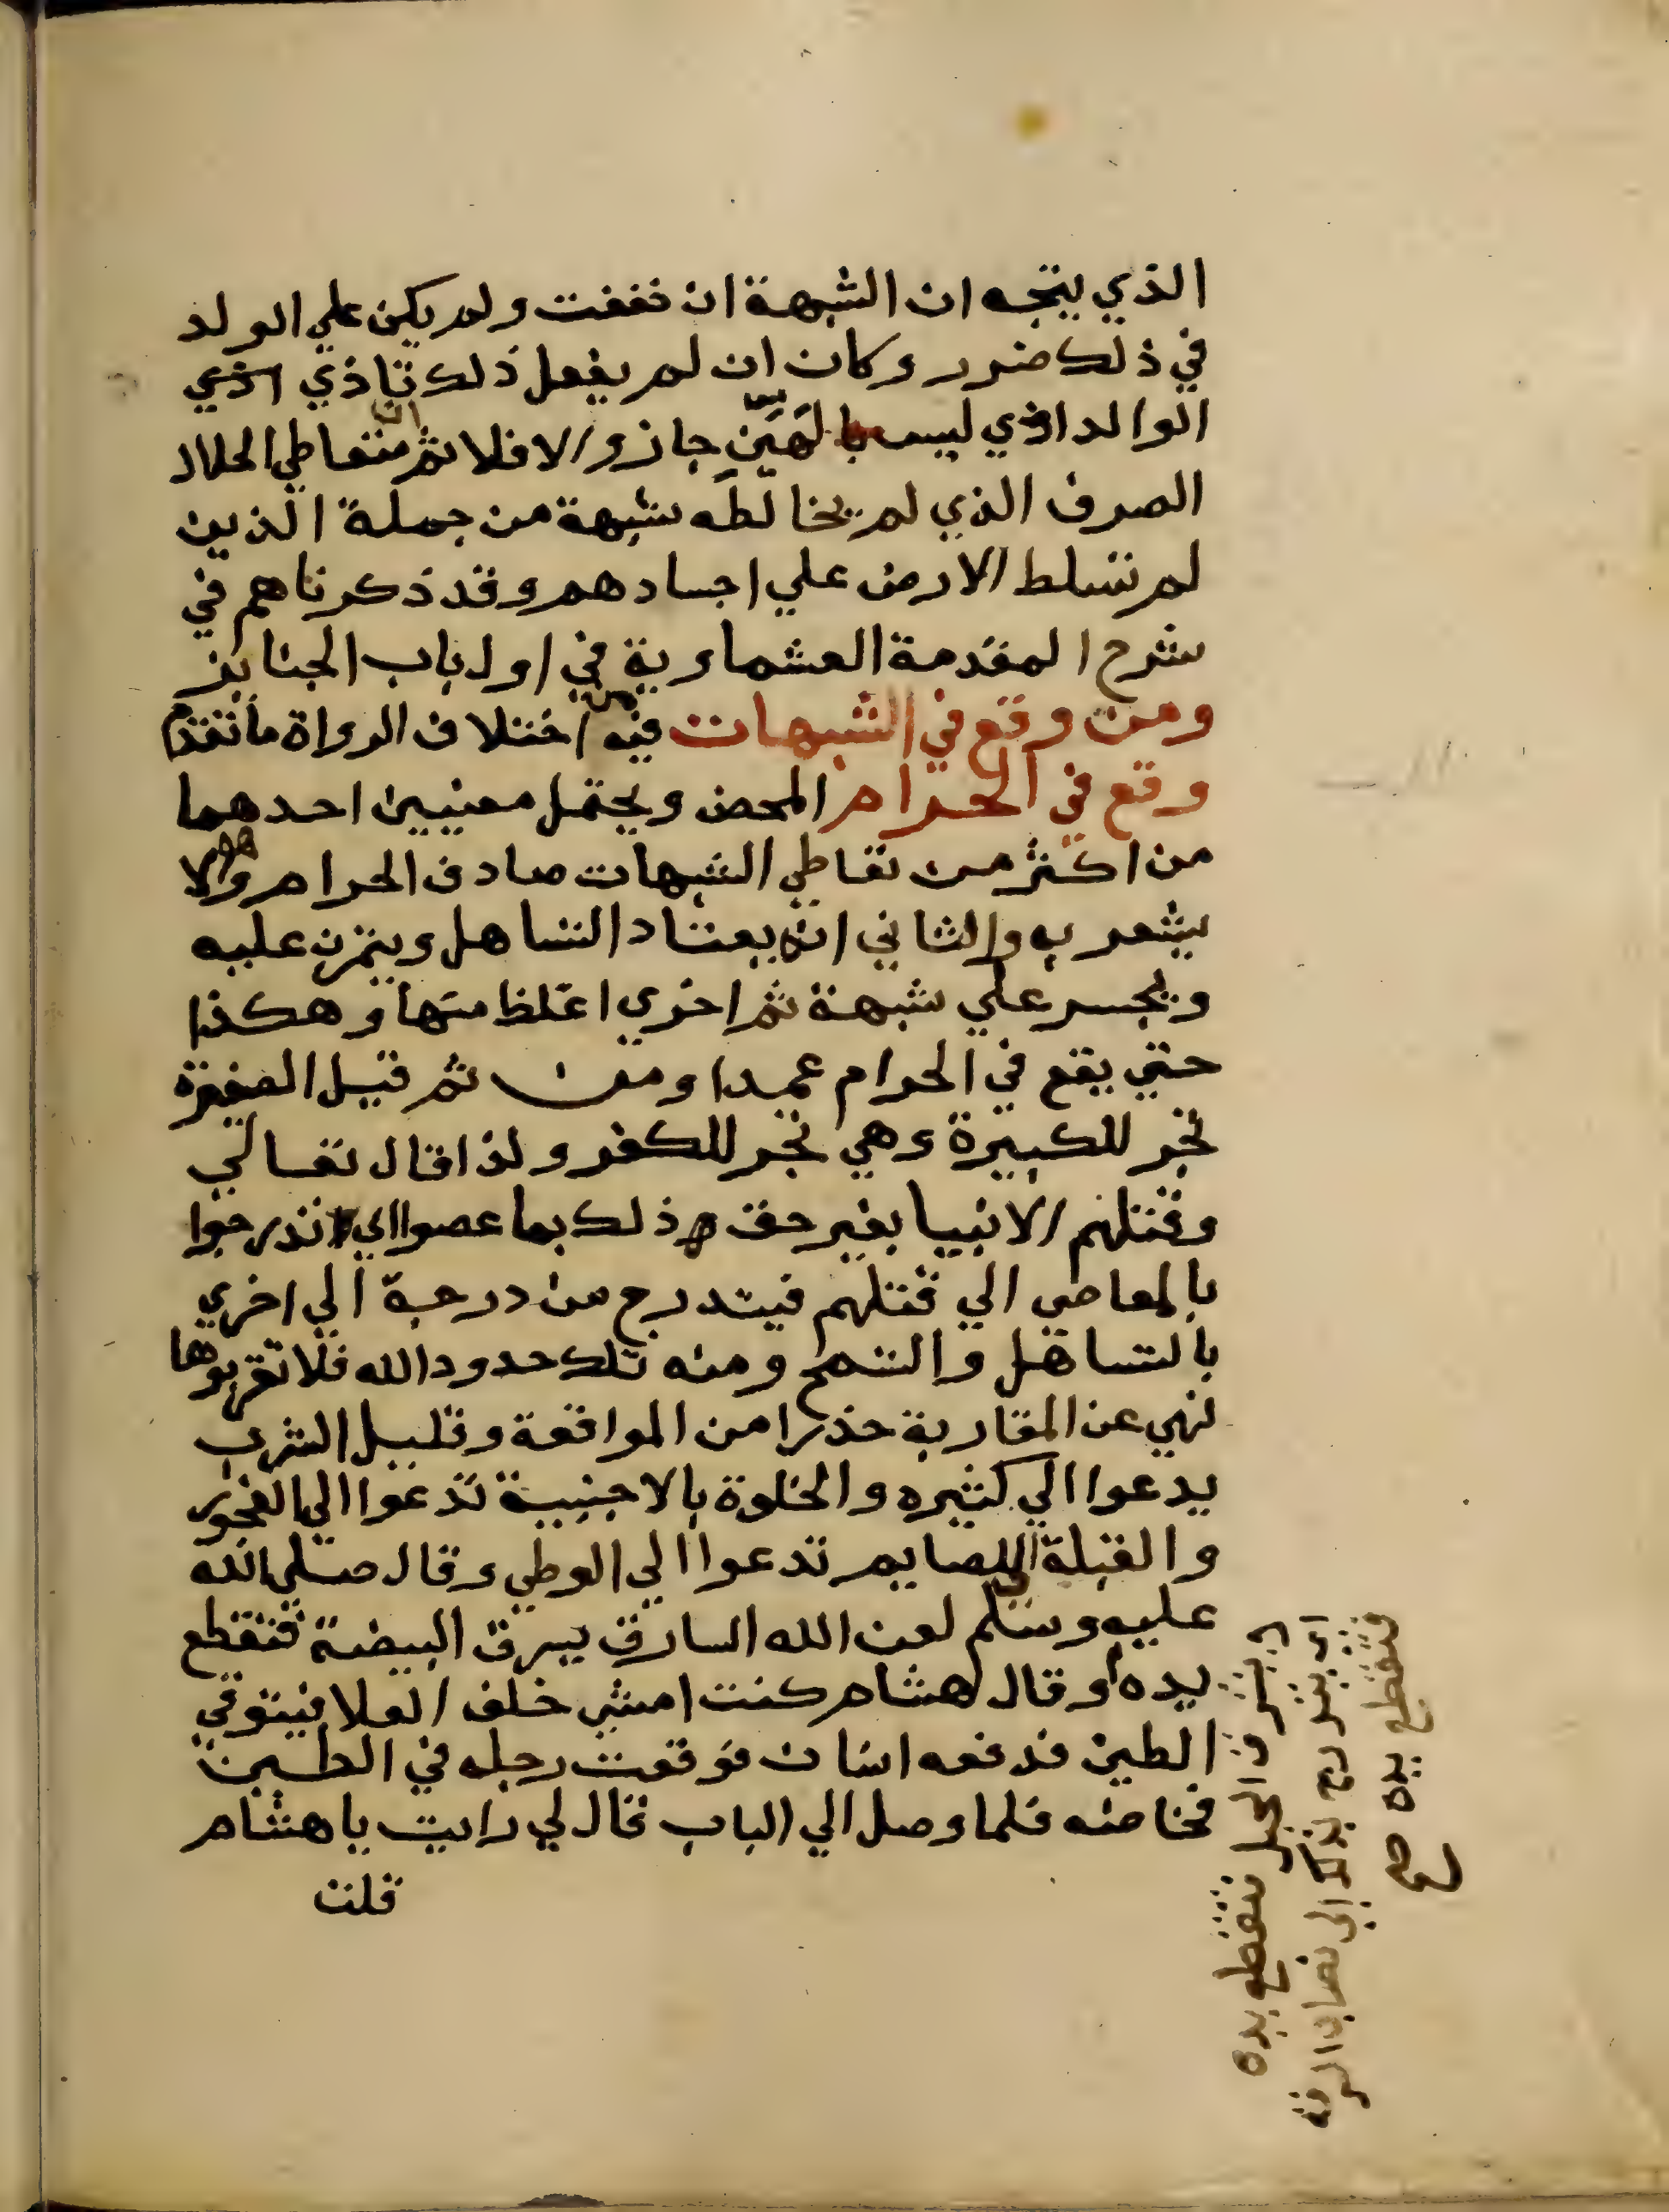 الذي يتجه ان الشبهة ان خففت ولم يكن علي الولد
في ذلك ضرر وكان ان لم يفعل ذلك تاذي اذي
الوالد اذي ليس بالهَيِّنِ جاز والا فلا ثم ان متعاطي الحلال
الصرف الذي لم يخالطه شبهة من جملة الذين
لم تسلط الارض علي اجسادهم وقد ذكرناهم في
شرح المقدمة العشماوية في اول باب الجنايز
ومن وقع في الشبهات فيه من اختلاف الرواة ما تقدم
وقع في الحرام المحض ويحتمل معنيين احدهما
من اكثر من تعاطي الشبهات صادف الحرام وهو لا
يشعر به والثاني انه يعتاد التساهل ويتمرن عليه
ويجسر علي شبهة ثم اخري اغلظ منها وهكذا
حتي يقع في الحرام عمدا ومن ثم قيل الصغيرة
تجر للكبيرة وهي تجر للكفر ولذا قال تعالي
وقتلهم الانبيا بغير حق ذلك بما عصوا اي تدرجوا
بالمعاصي الي قتلهم فيتدرج من درجة الي اخري
بالتساهل والتسمح ومنه تلك حدود الله فلا تقربوها
نهي عن المقاربة حذرا من المواقعة وقليل الشرب
يدعوا الي كثيره والخلوة بالاجنبية تدعوا الي الفجور
والقبلة للصايم تدعوا الي الوطي وقال صلي الله
عليه وسلم لعن الله السارق يسرق البيضة فتقطع
يده وقال هشام كنت امشي خلف العلا فيتوقي
الطين فدفعه انسان فوقعت رجله في الطين
فخاضه فلما وصل الي الباب قال لي رايت يا هشام
قلت
ويسرق الحبل فتقطع يده
اي يتدرج بذلك الي نصاب السرقة
فتقطع يده صح